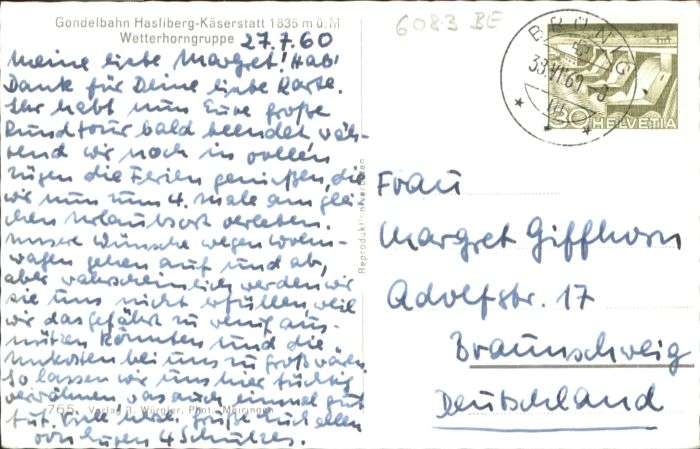 Gondelbahn Hasliberg-Käserstatt 1835 m ü. M
Wetterhorngruppe 27.7.60
6083 BE
BRÜNIG
HELVETIA
Meine liebe Margret! Hab'
Dank für Deine liebe Karte.
Ihr habt nun Eure große
Rundtour bald beendet wäh-
rend wir noch in vollen
Zügen die Ferien genießen, die
wir nun zum 4. Male am glei-
chen Urlaubsort verleben.
Unsere Wünsche wegen Wohn-
wagen gehen auf und ab,
aber wahrscheinlich werden wir
sie uns nicht erfüllen, weil
wir das Gefährt zu wenig aus-
nützen könnten und die
Unkosten bei uns zu groß wären.
So lassen wir uns hier tüchtig
verwöhnen was auch einmal gut
tut. Viele herzl. Grüße Euch allen
von Eugen 4 Schulzes.
765 Verlag B. Würgler, Phot. Meiringen
Reproduktion verboten
Frau
Margret Giffhorn
Adolfstr. 17
Braunschweig
Deutschland